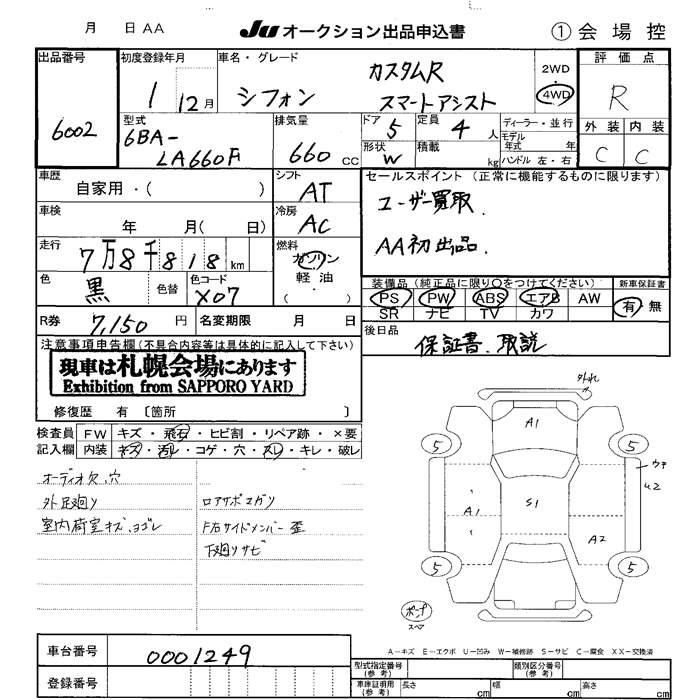 月 日 AA
JU オークション出品申込書
① 会場控
出品番号
6002
初度登録年月
1 12月
車名・グレード
シフォン
カスタムR
スマートアシスト
2WD
4WD
評価点
R
外装 内装
C C
型式
6BA-
LA660F
排気量
660 cc
ドア 5
定員 4 人
形状 W
積載 kg
ディーラー・並行
モデル年式 年
ハンドル 左・右
車歴
自家用・( )
シフト
AT
車検
年 月( 日)
冷房
AC
走行
7万8千818 km
燃料
ガソリン
軽油
( ・ )
色
黒
色替
色コード
X07
R券
7,150 円
名変期限 月 日
セールスポイント(正常に機能するものに限ります)
ユーザー買取.
AA初出品.
装備品(純正品に限り○をつけてください)
PS PW ABS エアB AW
SR ナビ TV カワ
新車保証書
有・無
後日品
保証書.取説
注意事項申告欄(不具合内容等は具体的に記入して下さい)
現車は札幌会場にあります
Exhibition from SAPPORO YARD
修復歴 有 〔箇所 〕
検査員記入欄
FW キズ・飛石・ヒビ割・リペア跡・×要
内装 キズ・汚レ・コゲ・穴・スレ・キレ・破レ
オーディオ欠.穴
外足廻り
室内荷室キズ.ヨゴレ
ロアサポマガリ
F右サイドメンバー歪
下廻りサビ
外れ
A1
5 5
A1 S1 A2
5 5
スペア
A−キズ E−エクボ U−凹み W−補修跡 S−サビ C−腐食 XX−交換済
車台番号
0001249
登録番号
型式指定番号(参考)
類別区分番号(参考)
車庫証明用(参考)
長さ cm
幅 cm
高さ cm